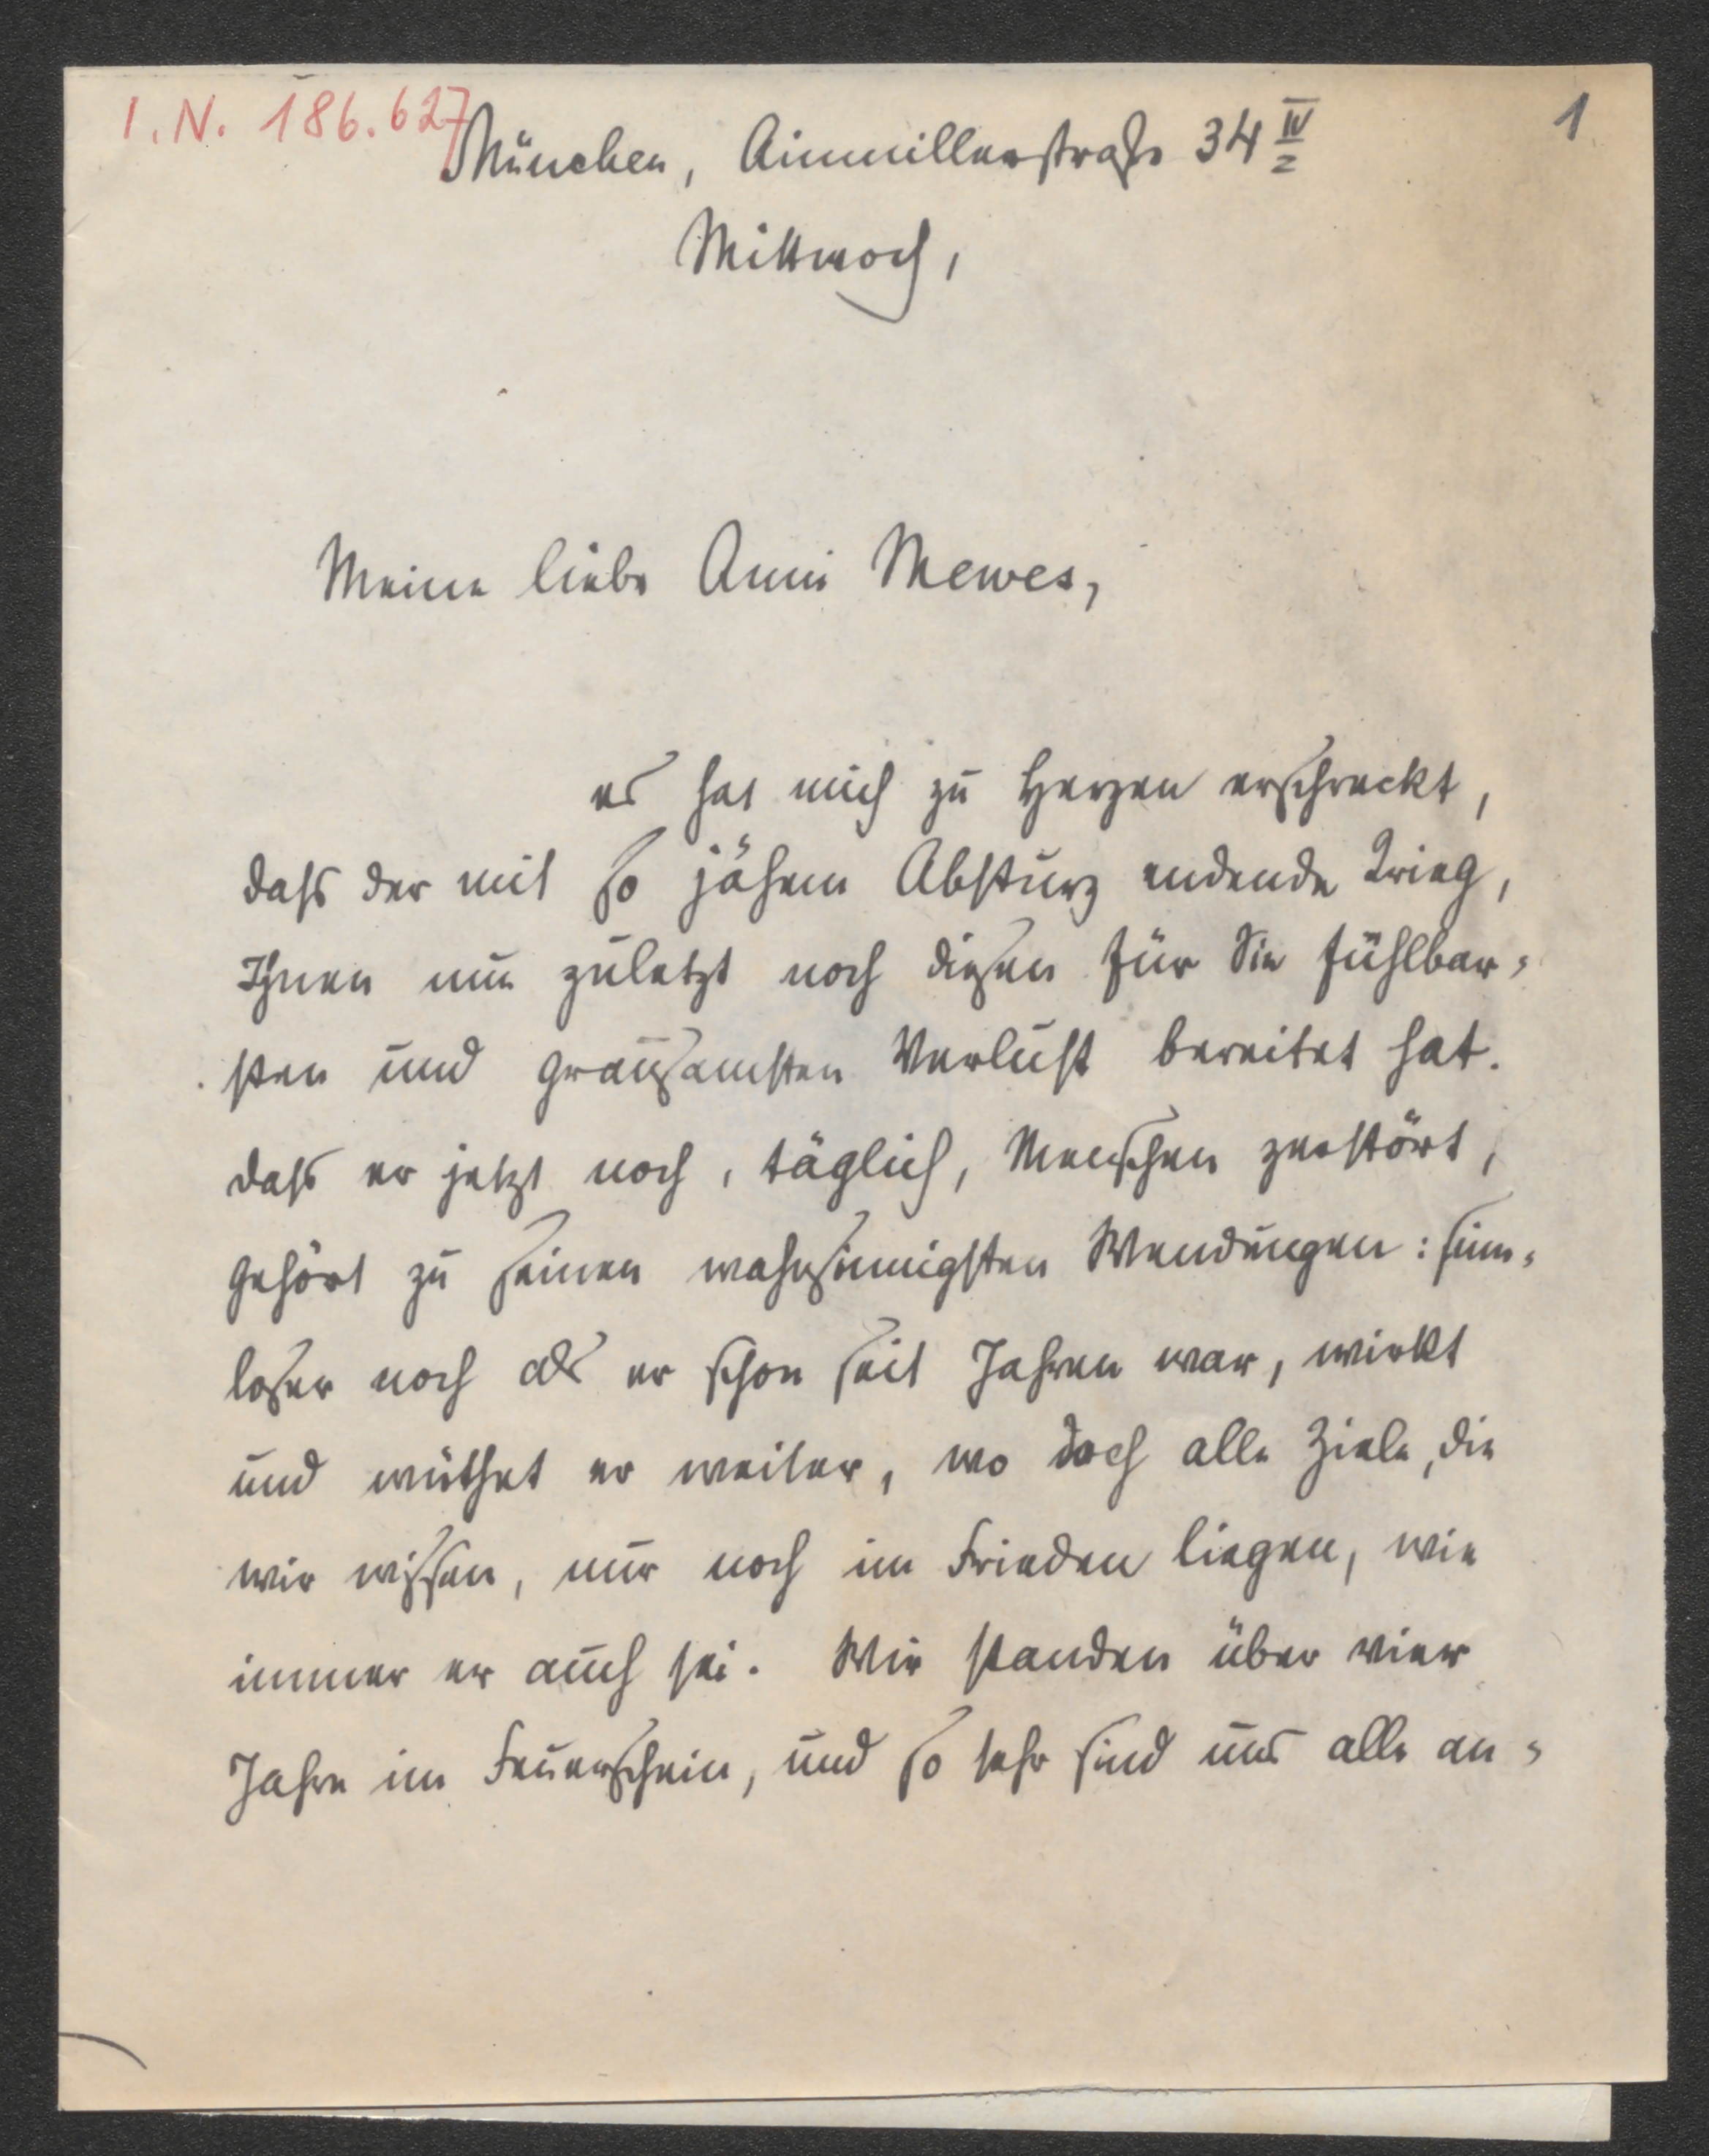 I. N. 186.627
1
München, Ainmillerstraße 34 IV
Mittwoch,
Meine liebe Anni Mewes,
es hat mich zu Herzen erschreckt,
dass der mit so jähem Absturz endende Krieg,
Ihnen nun zuletzt noch diesen für Sie fühlbar-
sten und grausamsten Verlust bereitet hat.
dass er jetzt noch, täglich, Menschen zerstört,
gehört zu seinen wahnsinnigsten Wendungen: sinn-
loser noch als er schon seit Jahren war, wirkt
und wüthet er weiter, wo doch alle Ziele, die
wir wissen, nur noch im Frieden liegen, wie
immer er auch sei. Wir standen über vier
Jahre im Feuerschein, und so sehr sind uns alle an-